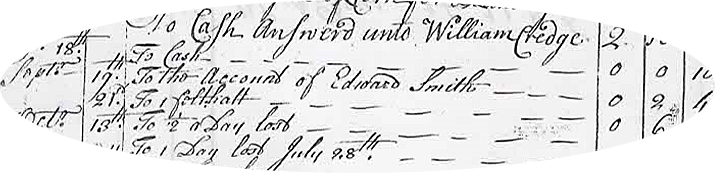 To Cash Answerd unto William Credge 2
18th To Cash
Septr 19th To the Account of Edward Smith 0 0 10
21st To 1 felthatt 0 2 4
Octr 13th To ½ a Day lost 0 6
To 1 Day lost July 28th